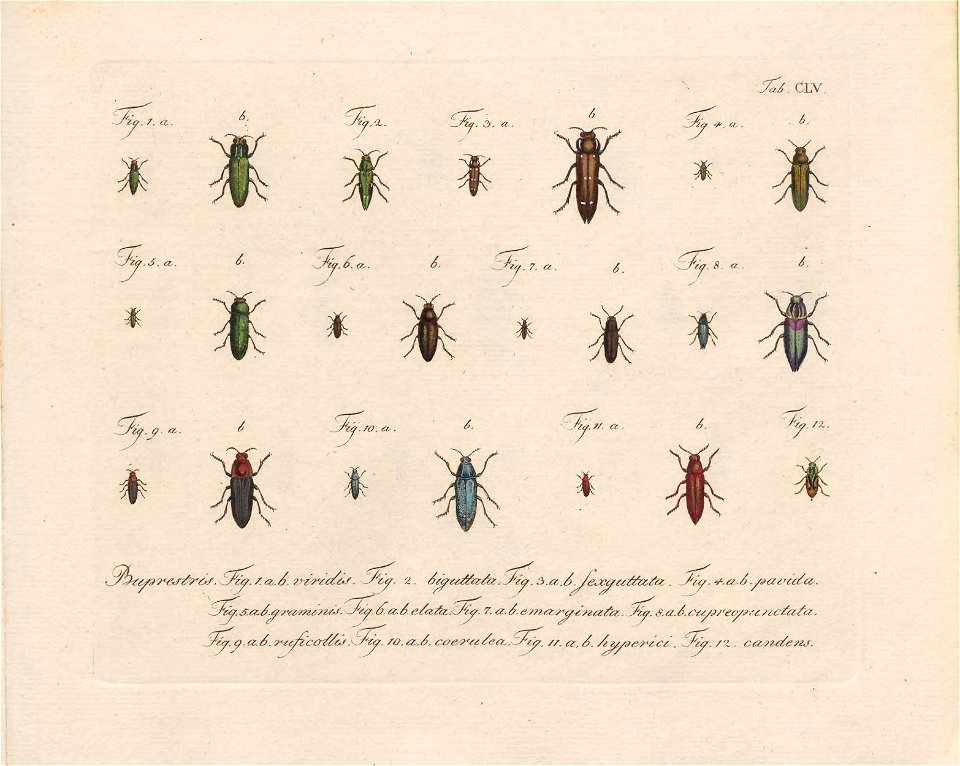 Tab. CLV.
Fig. 1. a. b. Fig. 2. Fig. 3. a. b Fig. 4. a. b.
Fig. 5. a. b. Fig. 6. a. b. Fig. 7. a. b. Fig. 8. a b.
Fig. 9. a. b Fig. 10. a. b. Fig. 11. a b. Fig. 12.
Buprestris. Fig. 1. a.b. viridis. Fig. 2. biguttata. Fig. 3. a.b. ſexguttata. Fig. 4. a.b. pavida.
Fig. 5. a.b. graminis. Fig. 6. a.b. elata. Fig. 7. a.b. emarginata. Fig. 8. a.b. cupreopunctata.
Fig. 9. a.b. ruficollis. Fig. 10. a.b. coerulea. Fig. 11. a.b. hyperici. Fig. 12. candens.